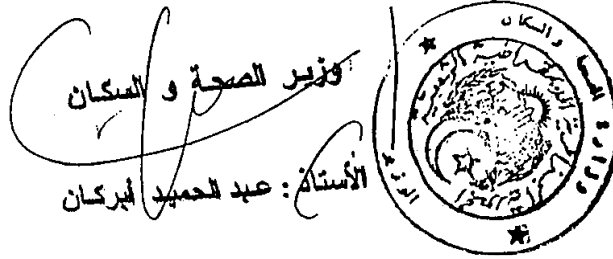 وزير الصحة و السكان
الأستاذ : عبد الحميد أبركان
وزارة الصحة و السكان
الوزير